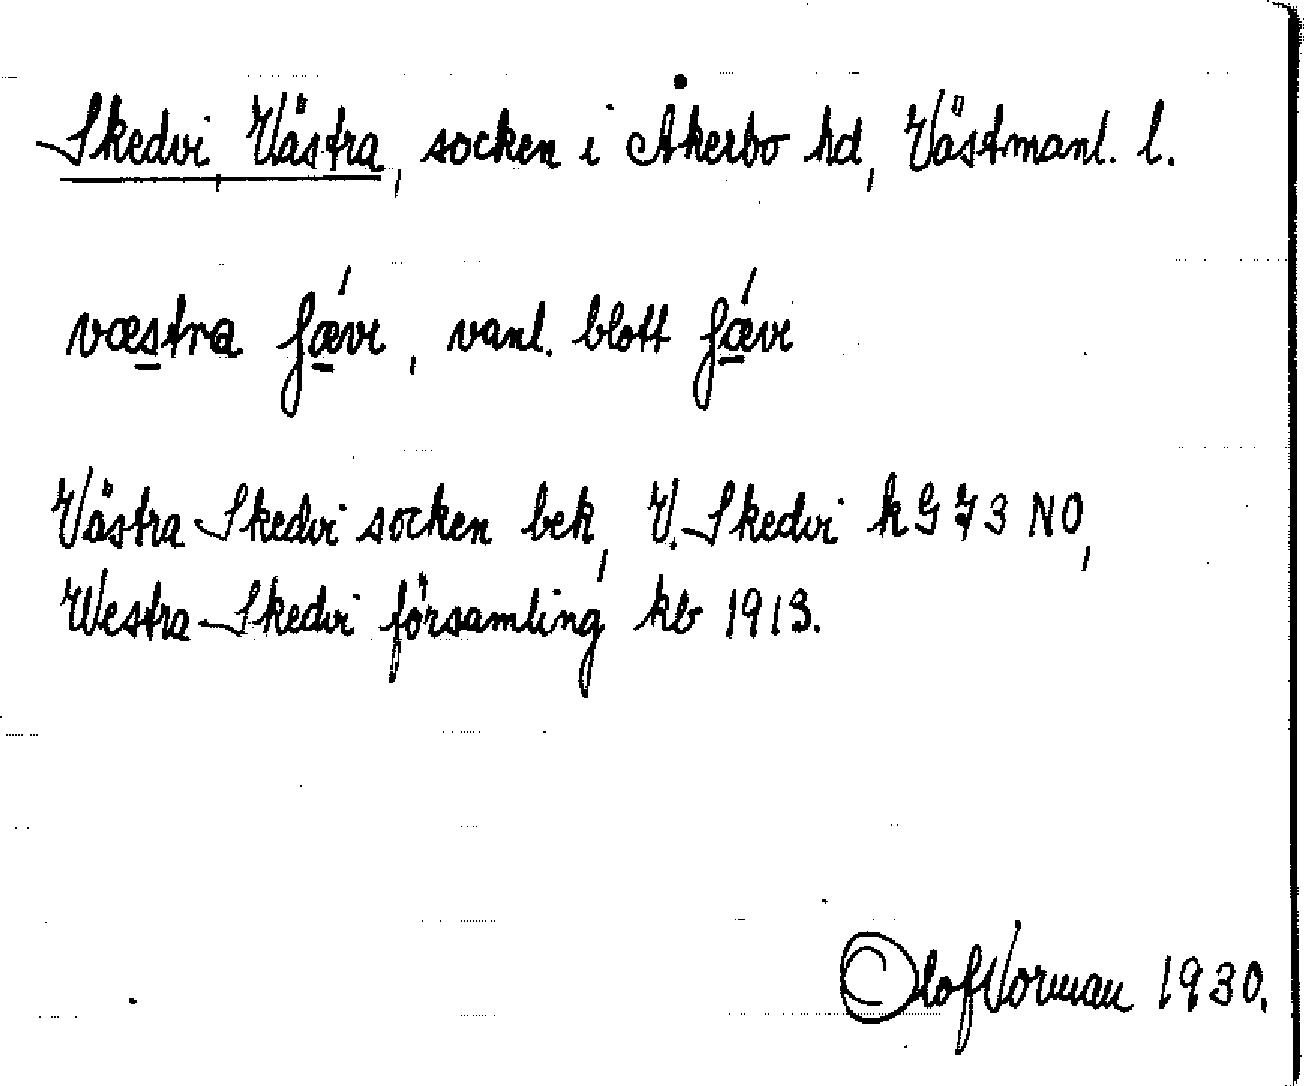 Skedvi Västra, socken i Åkerbo hd, Västmanl. l.
væstra ʃǽvi, vanl. blott ʃǽvi
Västra-Skedvi socken bek, V.-Skedvi k G 73 NO,
Westra-Skedvi församling kb 1913.
Olof Vorman 1930.